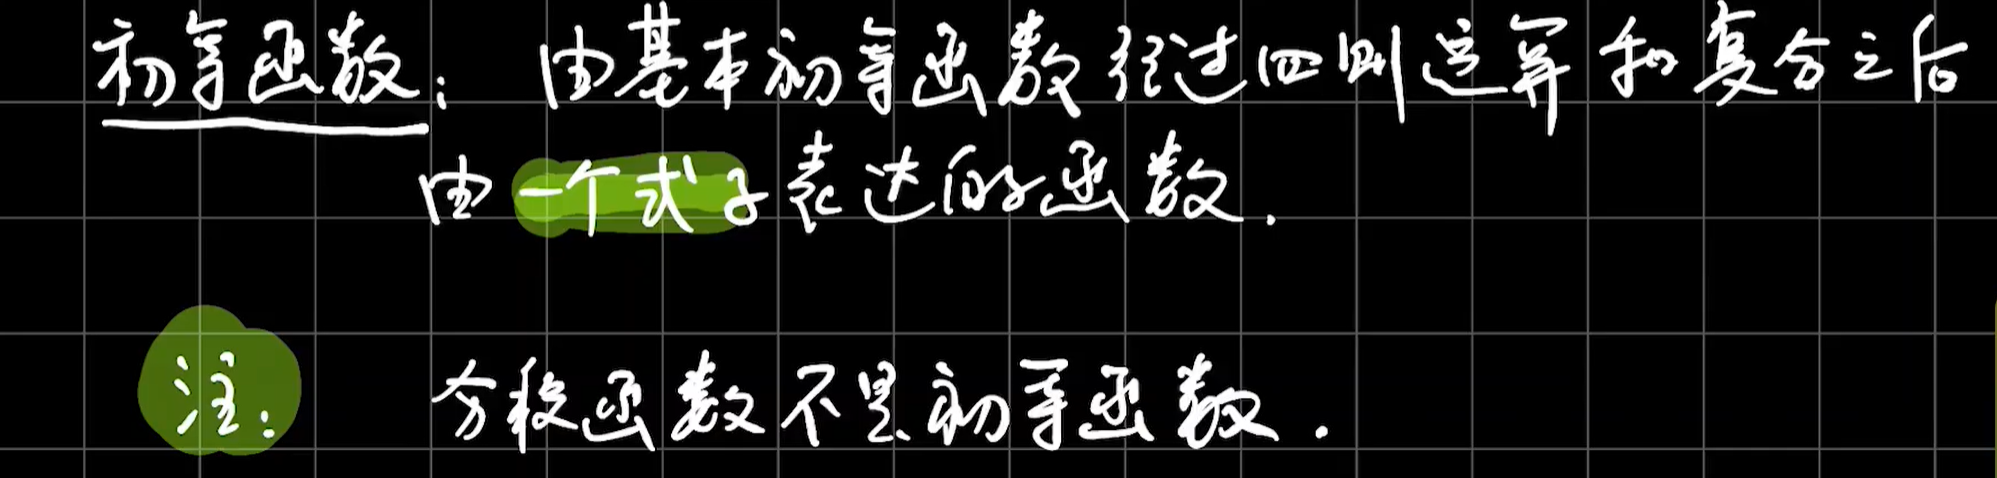 初等函数：由基本初等函数经过四则运算和复合之后
由一个式子表达的函数.
注：分段函数不是初等函数.